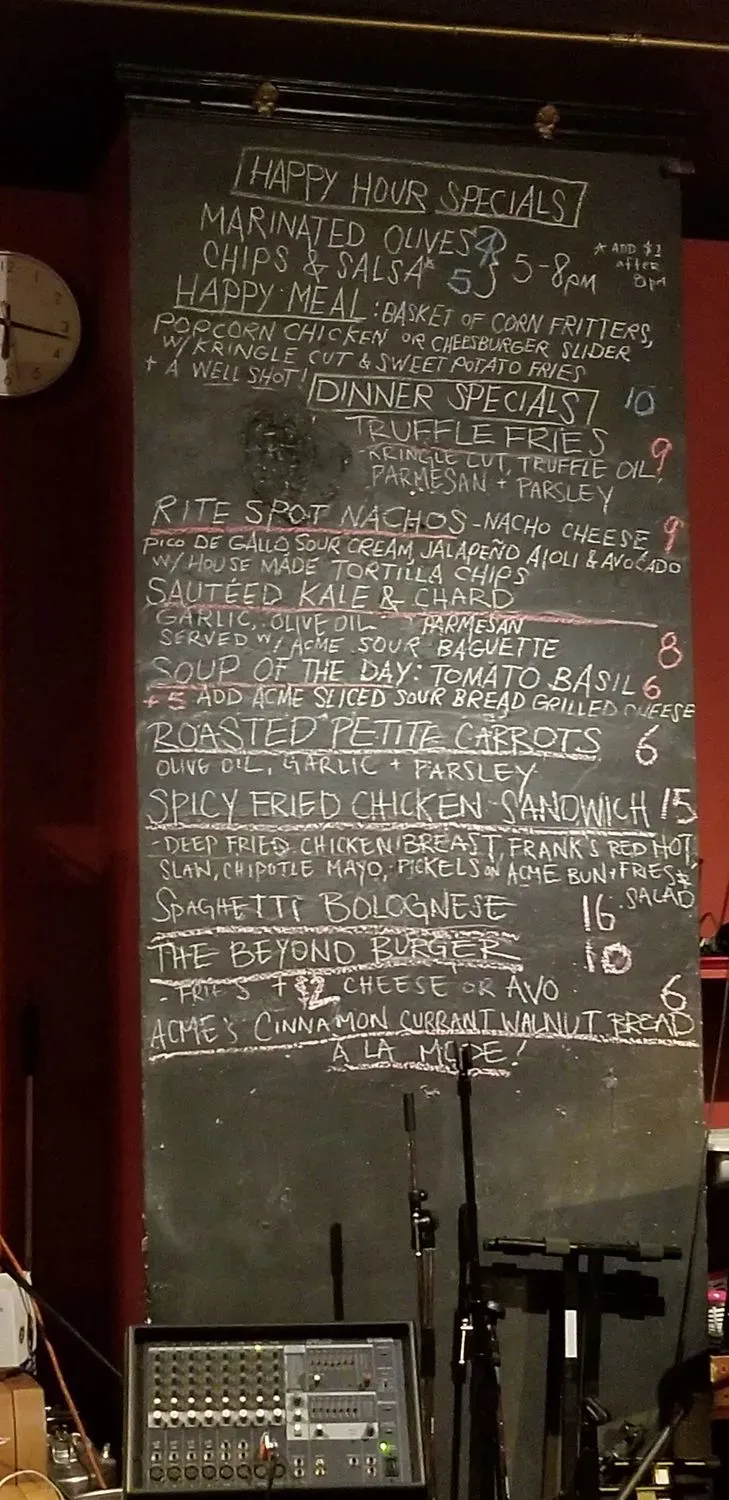 HAPPY HOUR SPECIALS
MARINATED OLIVES 4
CHIPS & SALSA* 5 } 5-8PM
* ADD $1
after
8pm
HAPPY MEAL: BASKET OF CORN FRITTERS,
POPCORN CHICKEN OR CHEESBURGER SLIDER
W/ KRINGLE CUT & SWEET POTATO FRIES
+ A WELL SHOT! 10
DINNER SPECIALS
TRUFFLE FRIES 9
-KRINGLE CUT, TRUFFLE OIL,
PARMESAN + PARSLEY
RITE SPOT NACHOS - NACHO CHEESE, 9
PICO DE GALLO, SOUR CREAM, JALAPEÑO AIOLI & AVOCADO
W/ HOUSE MADE TORTILLA CHIPS
SAUTÉED KALE & CHARD
GARLIC, OLIVE OIL PARMESAN
SERVED W/ ACME SOUR BAGUETTE 8
SOUP OF THE DAY: TOMATO BASIL 6
+5 ADD ACME SLICED SOUR BREAD GRILLED CHEESE
ROASTED PETITE CARROTS 6
OLIVE OIL, GARLIC + PARSLEY
SPICY FRIED CHICKEN SANDWICH 15
-DEEP FRIED CHICKEN BREAST, FRANK'S RED HOT,
SLAW, CHIPOTLE MAYO, PICKELS ON ACME BUN + FRIES &
SALAD
SPAGHETTI BOLOGNESE 16
THE BEYOND BURGER 10
- FRIES + $2 CHEESE OR AVO
ACME'S CINNAMON CURRANT WALNUT BREAD 6
A LA MODE!